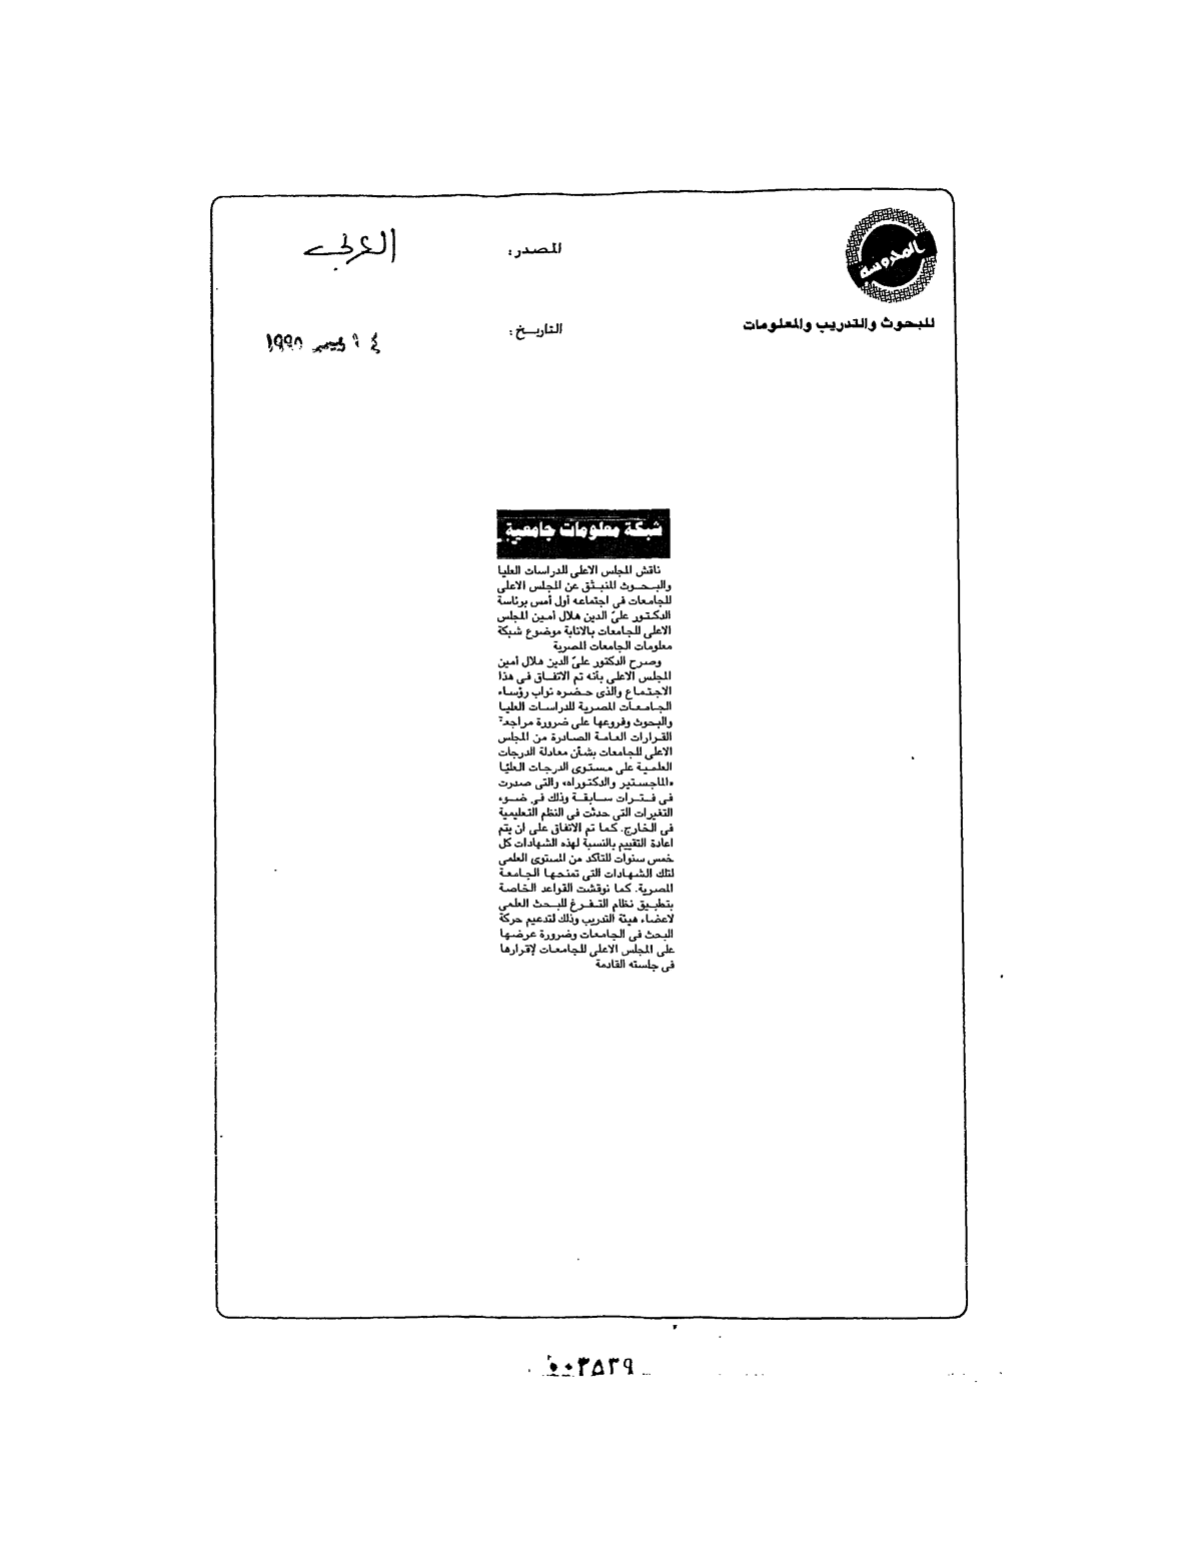 المحروسة
للبحوث والتدريب والمعلومات
المصدر: العربي
التاريخ: ديسمبر ١٩٩٥
شبكة معلومات جامعية
ناقش المجلس الاعلى للدراسات العليا
والبحوث المنبثق عن المجلس الاعلى
للجامعات فى اجتماعه أول أمس برئاسة
الدكتور علىّ الدين هلال أمين المجلس
الاعلى للجامعات بالانابة موضوع شبكة
معلومات الجامعات المصرية
وصرح الدكتور علىّ الدين هلال أمين
المجلس الاعلى بأنه تم الاتفاق فى هذا
الاجتماع والذى حضره نواب رؤساء
الجامعات المصرية للدراسات العليا
والبحوث وفروعها على ضرورة مراجعة
القرارات العامة الصادرة من المجلس
الاعلى للجامعات بشأن معادلة الدرجات
العلمية على مستوى الدرجات العليا
«الماجستير والدكتوراه» والتى صدرت
فى فترات سابقة وذلك فى ضوء
التغيرات التى حدثت فى النظم التعليمية
فى الخارج. كما تم الاتفاق على ان يتم
اعادة التقييم بالنسبة لهذه الشهادات كل
خمس سنوات للتأكد من المستوى العلمى
لتلك الشهادات التى تمنحها الجامعة
المصرية. كما نوقشت القواعد الخاصة
بتطبيق نظام التفرغ للبحث العلمى
لاعضاء هيئة التدريب وذلك لتدعيم حركة
البحث فى الجامعات وضرورة عرضها
على المجلس الاعلى للجامعات لإقرارها
فى جلسته القادمة